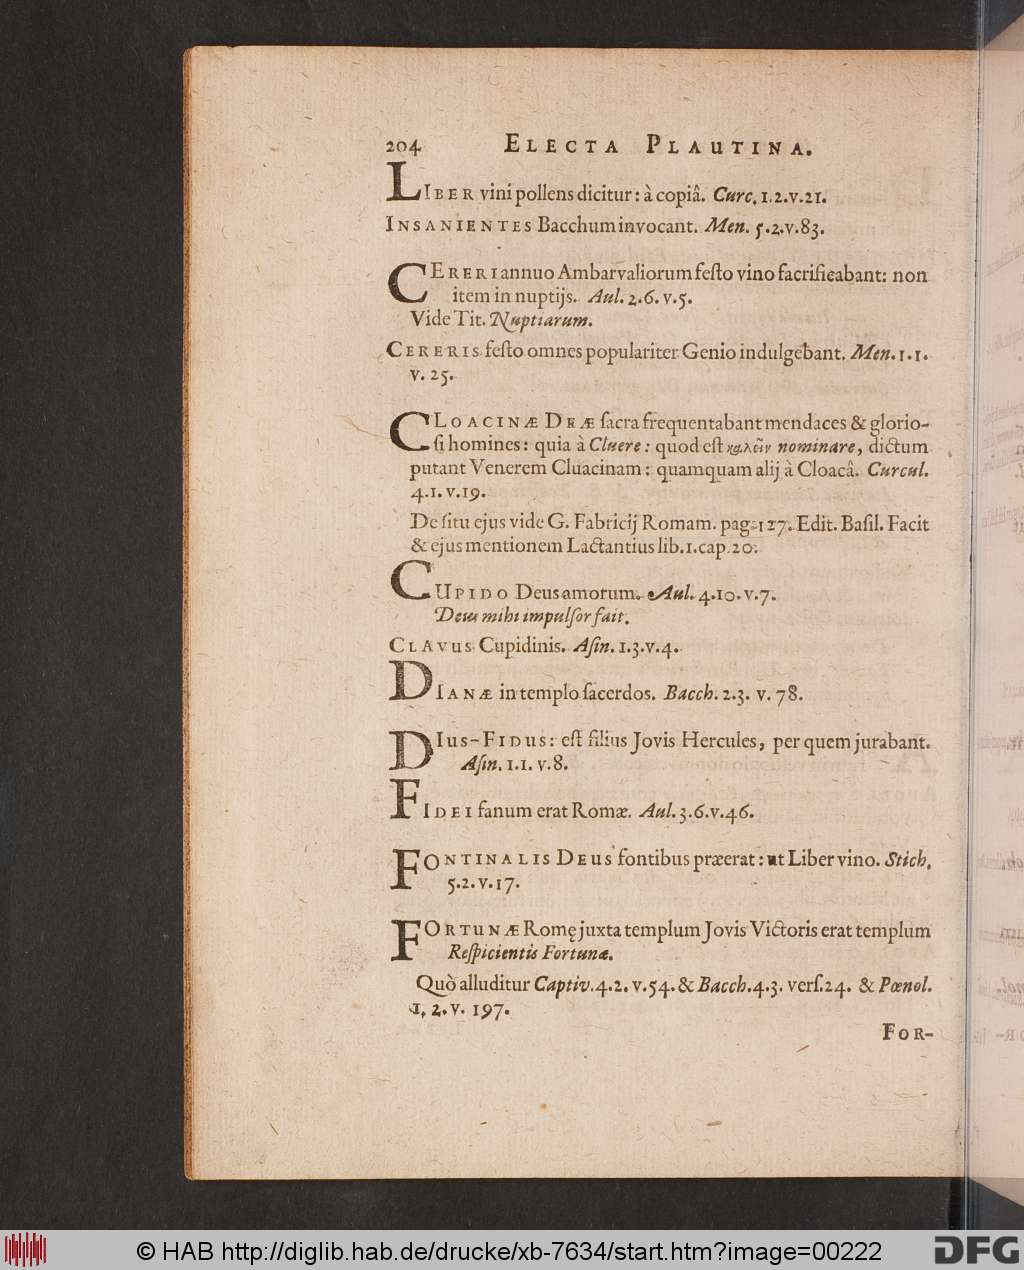 204 ELECTA PLAUTINA.
LIBER vini pollens dicitur: à copiâ. Curc. 1.2.v.21.
INSANIENTES Bacchum invocant. Men. 5.2.v.83.
CERERI annuo Ambarvaliorum feſto vino ſacrificabant: non
item in nuptijs. Aul. 2.6. v.5.
Vide Tit. Nuptiarum.
CERERIS feſto omnes populariter Genio indulgebant. Men. 1.1.
v. 25.
CLOACINÆ DEÆ ſacra frequentabant mendaces & glorio-
ſi homines: quia à Cluere: quod eſt καλεῖν nominare, dictum
putant Venerem Cluacinam: quamquam alij à Cloacâ. Curcul.
4.1. v.19.
De ſitu ejus vide G. Fabricij Romam. pag. 127. Edit. Baſil. Facit
& ejus mentionem Lactantius lib.1.cap.20.
CUPIDO Deus amorum. Aul. 4.10.v.7.
Deus mihi impulſor fait.
CLAVUS Cupidinis. Aſin. 1.3.v.4.
DIANÆ in templo ſacerdos. Bacch. 2.3. v. 78.
DIUS-FIDUS: eſt filius Jovis Hercules, per quem jurabant.
Aſin. 1.1. v.8.
FIDEI fanum erat Romæ. Aul. 3.6.v.46.
FONTINALIS DEUS fontibus præerat: ut Liber vino. Stich.
5.2.v.17.
FORTUNÆ Romę juxta templum Jovis Victoris erat templum
Reſpicientis Fortunæ.
Quò alluditur Captiv. 4.2. v.54. & Bacch. 4.3. verſ.24. & Pœnol.
1. 2. v. 197.
FOR-
© HAB http://diglib.hab.de/drucke/xb-7634/start.htm?image=00222
DFG